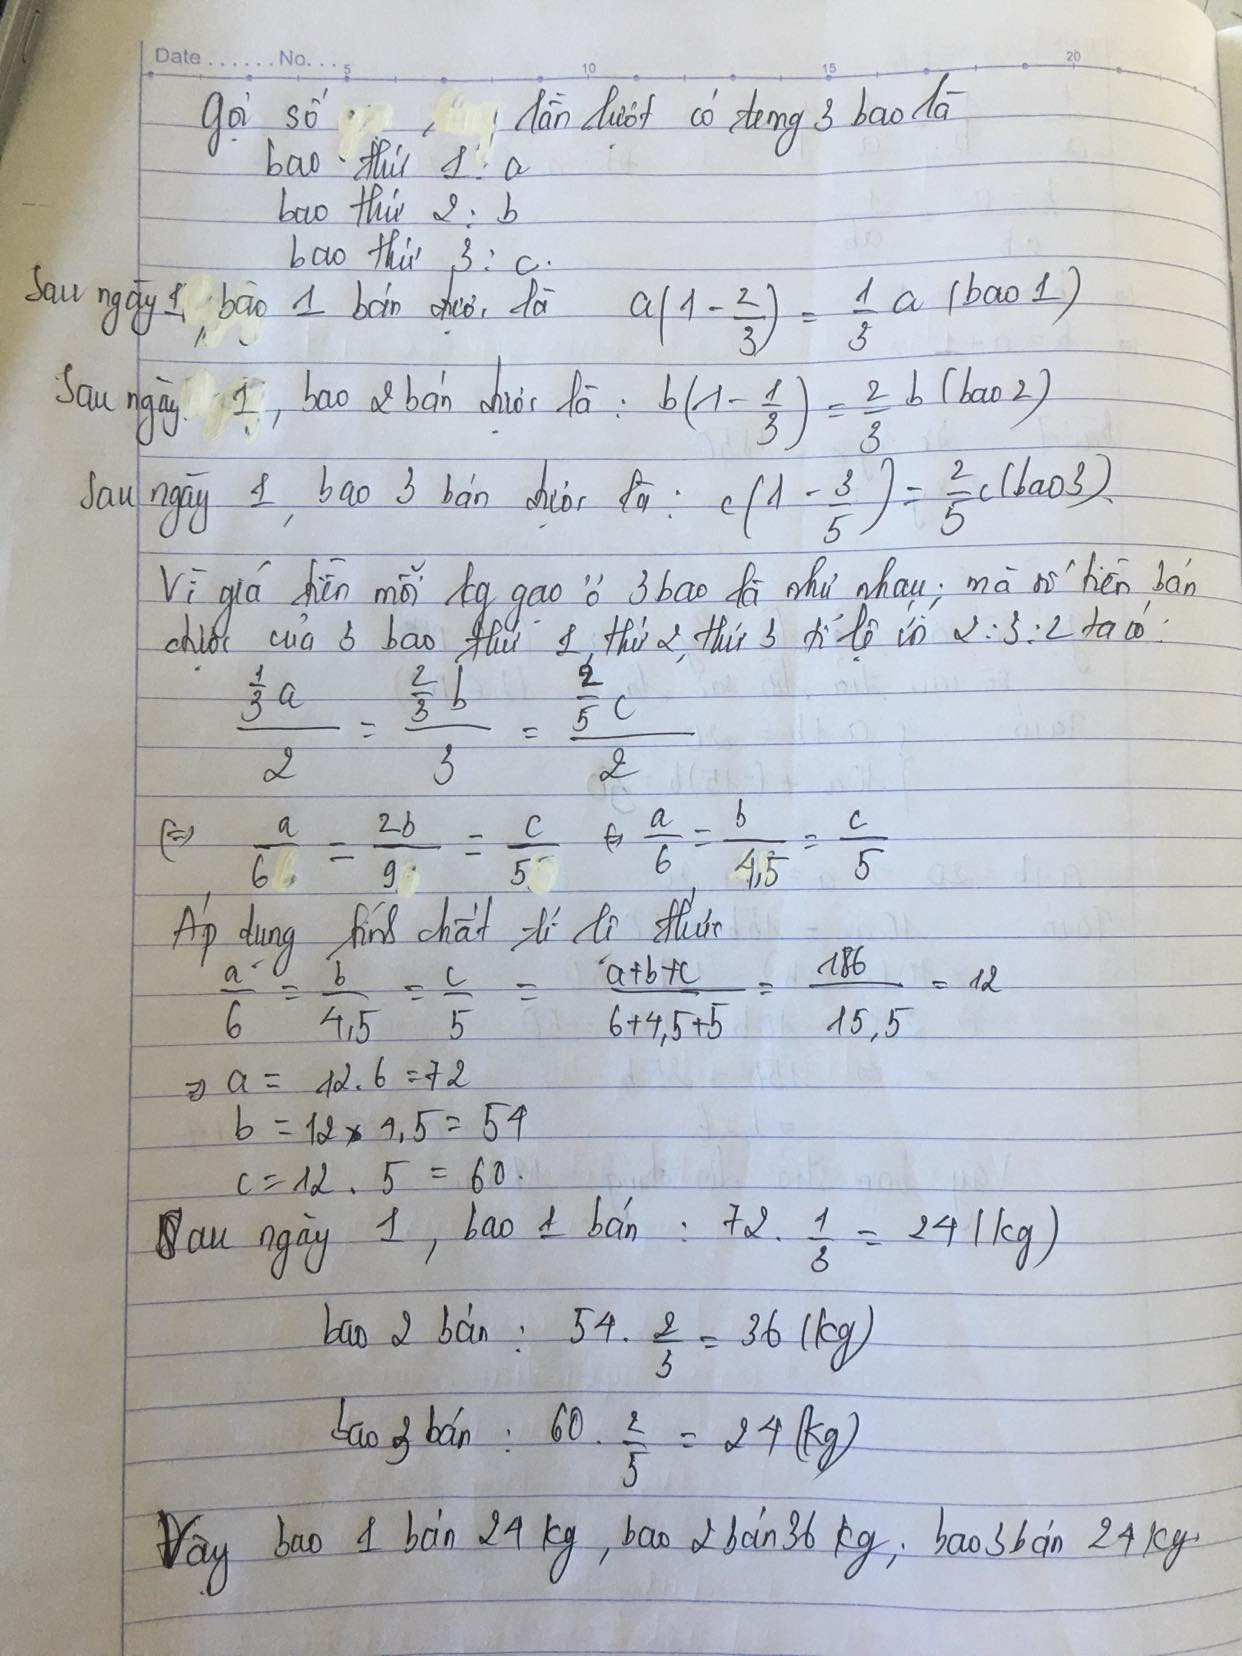 Date ...... No. ...
5 10 15 20
Gọi số lần lượt có trong 3 bao là
bao thứ 1 : a
bao thứ 2 : b
bao thứ 3 : c.
Sau ngày 1, bao 1 bán được là a(1 - 2/3) = 1/3 a (bao 1)
Sau ngày 1, bao 2 bán được là : b(1 - 1/3) = 2/3 b (bao 2)
Sau ngày 1, bao 3 bán được là : c(1 - 3/5) = 2/5 c (bao 3)
Vì giá tiền mỗi kg gạo ở 3 bao là như nhau, mà số tiền bán
được của 3 bao thứ 1, thứ 2, thứ 3 tỉ lệ với 2 : 3 : 2 ta có :
(1/3 a)/2 = (2/3 b)/3 = (2/5 c)/2
(=) a/6 = 2b/9 = c/5 (=) a/6 = b/4,5 = c/5
Áp dụng tính chất tỉ lệ thức
a/6 = b/4,5 = c/5 = (a+b+c)/(6+4,5+5) = 186/15,5 = 12
=> a = 12.6 = 72
b = 12 x 4,5 = 54
c = 12 . 5 = 60.
Sau ngày 1, bao 1 bán : 72 . 1/3 = 24 (kg)
bao 2 bán : 54 . 2/3 = 36 (kg)
bao 3 bán : 60 . 2/5 = 24 (kg)
Vậy bao 1 bán 24 kg, bao 2 bán 36 kg, bao 3 bán 24 kg.